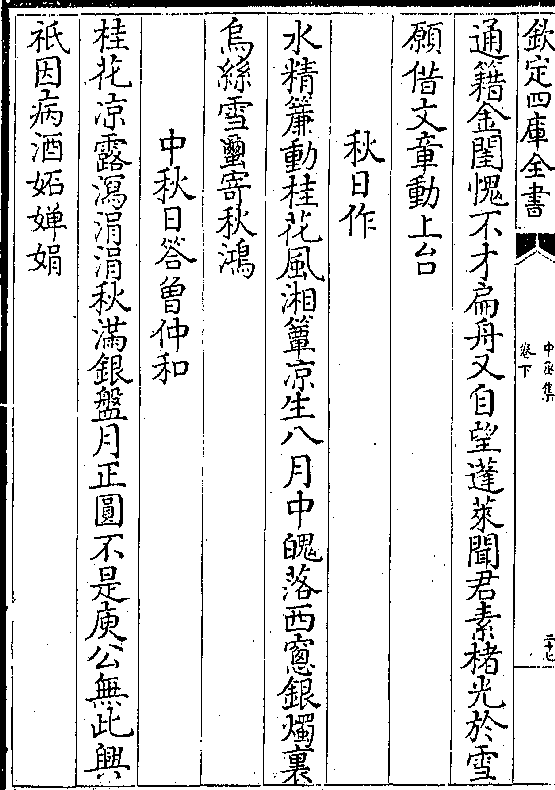 欽定四庫全書
中丞集
卷下
二十七
通籍金閨愧不才扁舟又自望蓬萊聞君素楮光於雪
願借文章動上台
秋日作
水精簾動桂花風湘簟凉生八月中魄落西窻銀燭裏
烏絲雪璽寄秋鴻
中秋日答曾仲和
桂花凉露瀉涓涓秋滿銀盤月正圓不是庾公無此興
祇因病酒妬嬋娟